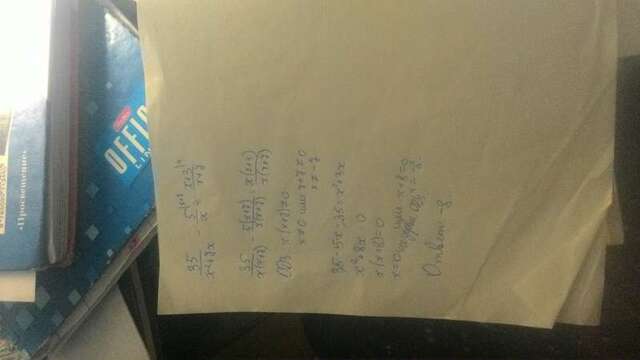 «Просвещение»
OFFIC
35/(x²+7x) - 5/x = (x+3)/(x+7)
35/x(x+7) - 5(x+7)/x(x+7) = x(x+3)/x(x+7)
ОДЗ x(x+7)≠0
x≠0 или x+7≠0
x≠-7
35-5x-35=x²+3x
x²+8x=0
x(x+8)=0
x=0 или x+8=0
ОДЗ x=-8
Ответ: -8